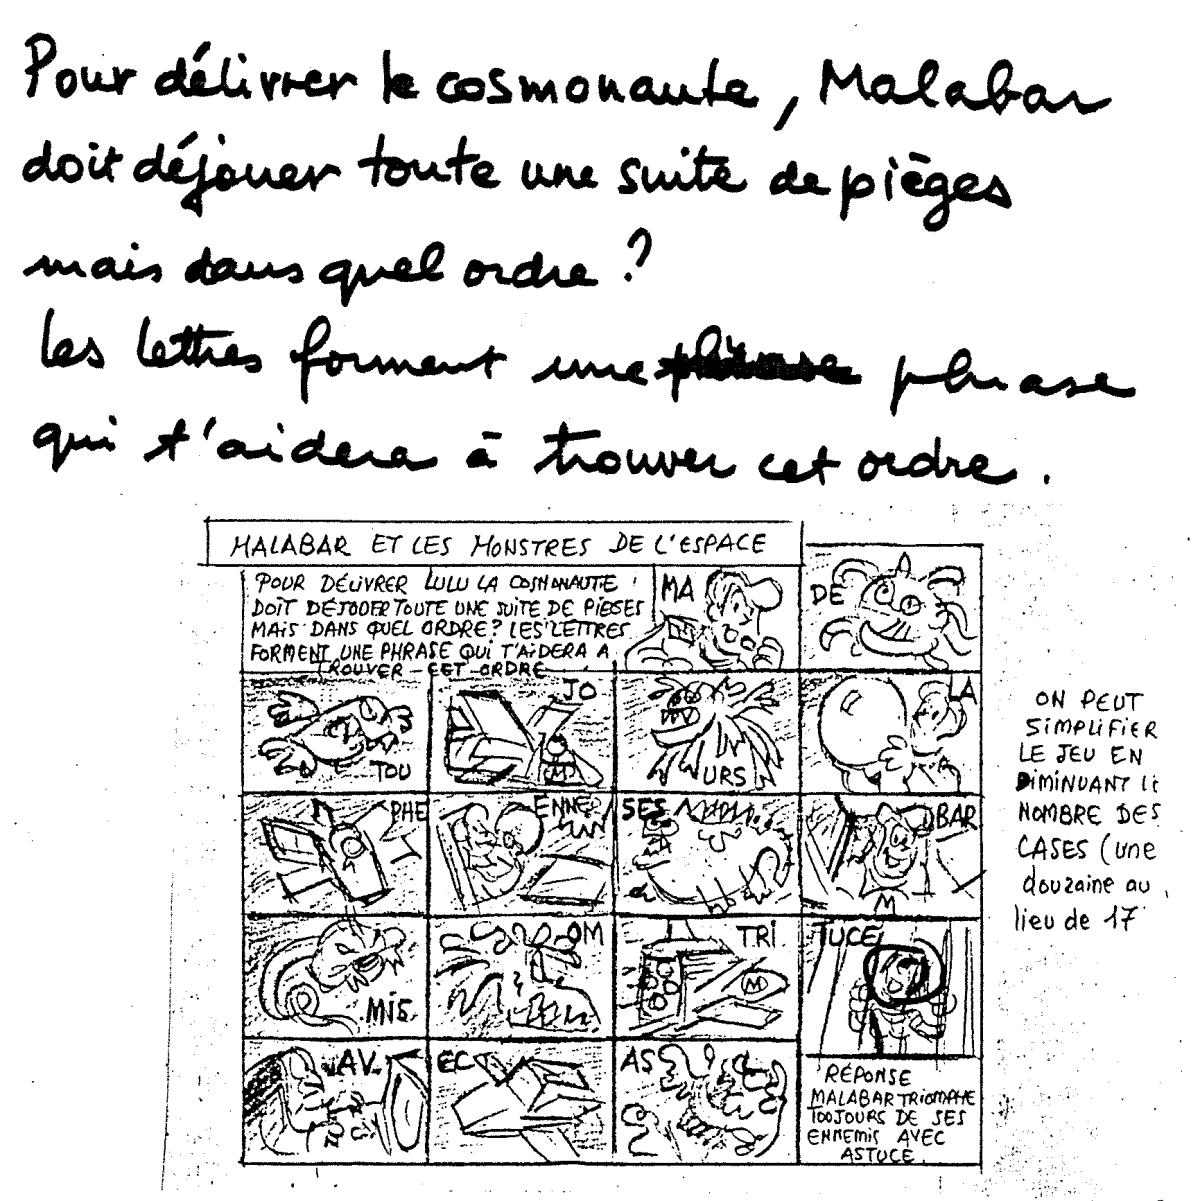 Pour délivrer le cosmonaute, Malabar
doit déjouer toute une suite de pièges
mais dans quel ordre ?
les lettres forment une phrase
qui t'aidera à trouver cet ordre.
MALABAR ET LES MONSTRES DE L'ESPACE
POUR DÉLIVRER LULU LA COSMONAUTE
DOIT DÉJOUER TOUTE UNE SUITE DE PIEGES
MAIS DANS QUEL ORDRE? LES LETTRES
FORMENT UNE PHRASE QUI T'AIDERA A
TROUVER CET ORDRE
MA
DE
TOU
JO
URS
LA
PHE
ENNE
SES
BAR
M
MIS
OM
TRI
M
TUCE
AV
EC
AS
ON PEUT
SIMPLIFIER
LE JEU EN
DIMINUANT le
NOMBRE DES
CASES (une
douzaine au
lieu de 17
RÉPONSE
MALABAR TRIOMPHE
TOUJOURS DE SES
ENNEMIS AVEC
ASTUCE.